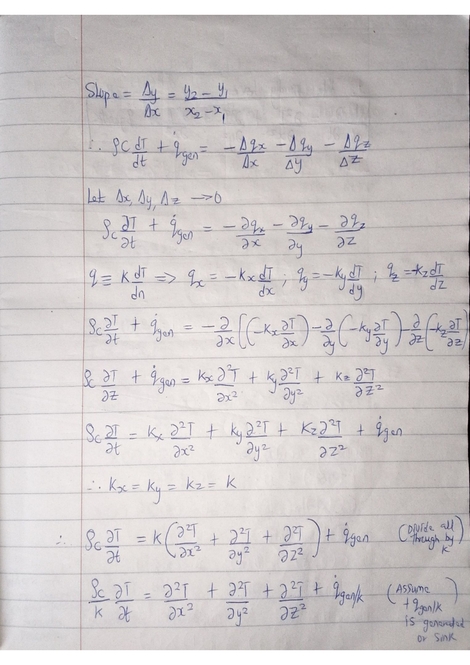 Slope = Δy/Δx = (y₂ − y₁)/(x₂ − x₁)
∴ ρc dT/dt + q̇gen = −Δqx/Δx − Δqy/Δy − Δqz/Δz
Let Δx, Δy, Δz → 0
ρc ∂T/∂t + q̇gen = −∂qx/∂x − ∂qy/∂y − ∂qz/∂z
q ≡ K dT/dn => qx = −Kx dT/dx ; qy = −Ky dT/dy ; qz = −Kz dT/dz
ρc ∂T/∂t + q̇gen = −∂/∂x [(−Kx ∂T/∂x) − ∂/∂y (−Ky ∂T/∂y) − ∂/∂z (−Kz ∂T/∂z)
ρc ∂T/∂z + q̇gen = Kx ∂²T/∂x² + Ky ∂²T/∂y² + Kz ∂²T/∂z²
ρc ∂T/∂t = Kx ∂²T/∂x² + Ky ∂²T/∂y² + Kz ∂²T/∂z² + q̇gen
∴ Kx = Ky = Kz = K
∴ ρc ∂T/∂t = K(∂²T/∂x² + ∂²T/∂y² + ∂²T/∂z²) + q̇gen (Divide all through by K)
ρc/K ∂T/∂t = ∂²T/∂x² + ∂²T/∂y² + ∂²T/∂z² + q̇gen/K (Assume + qgen/K is generated or sink